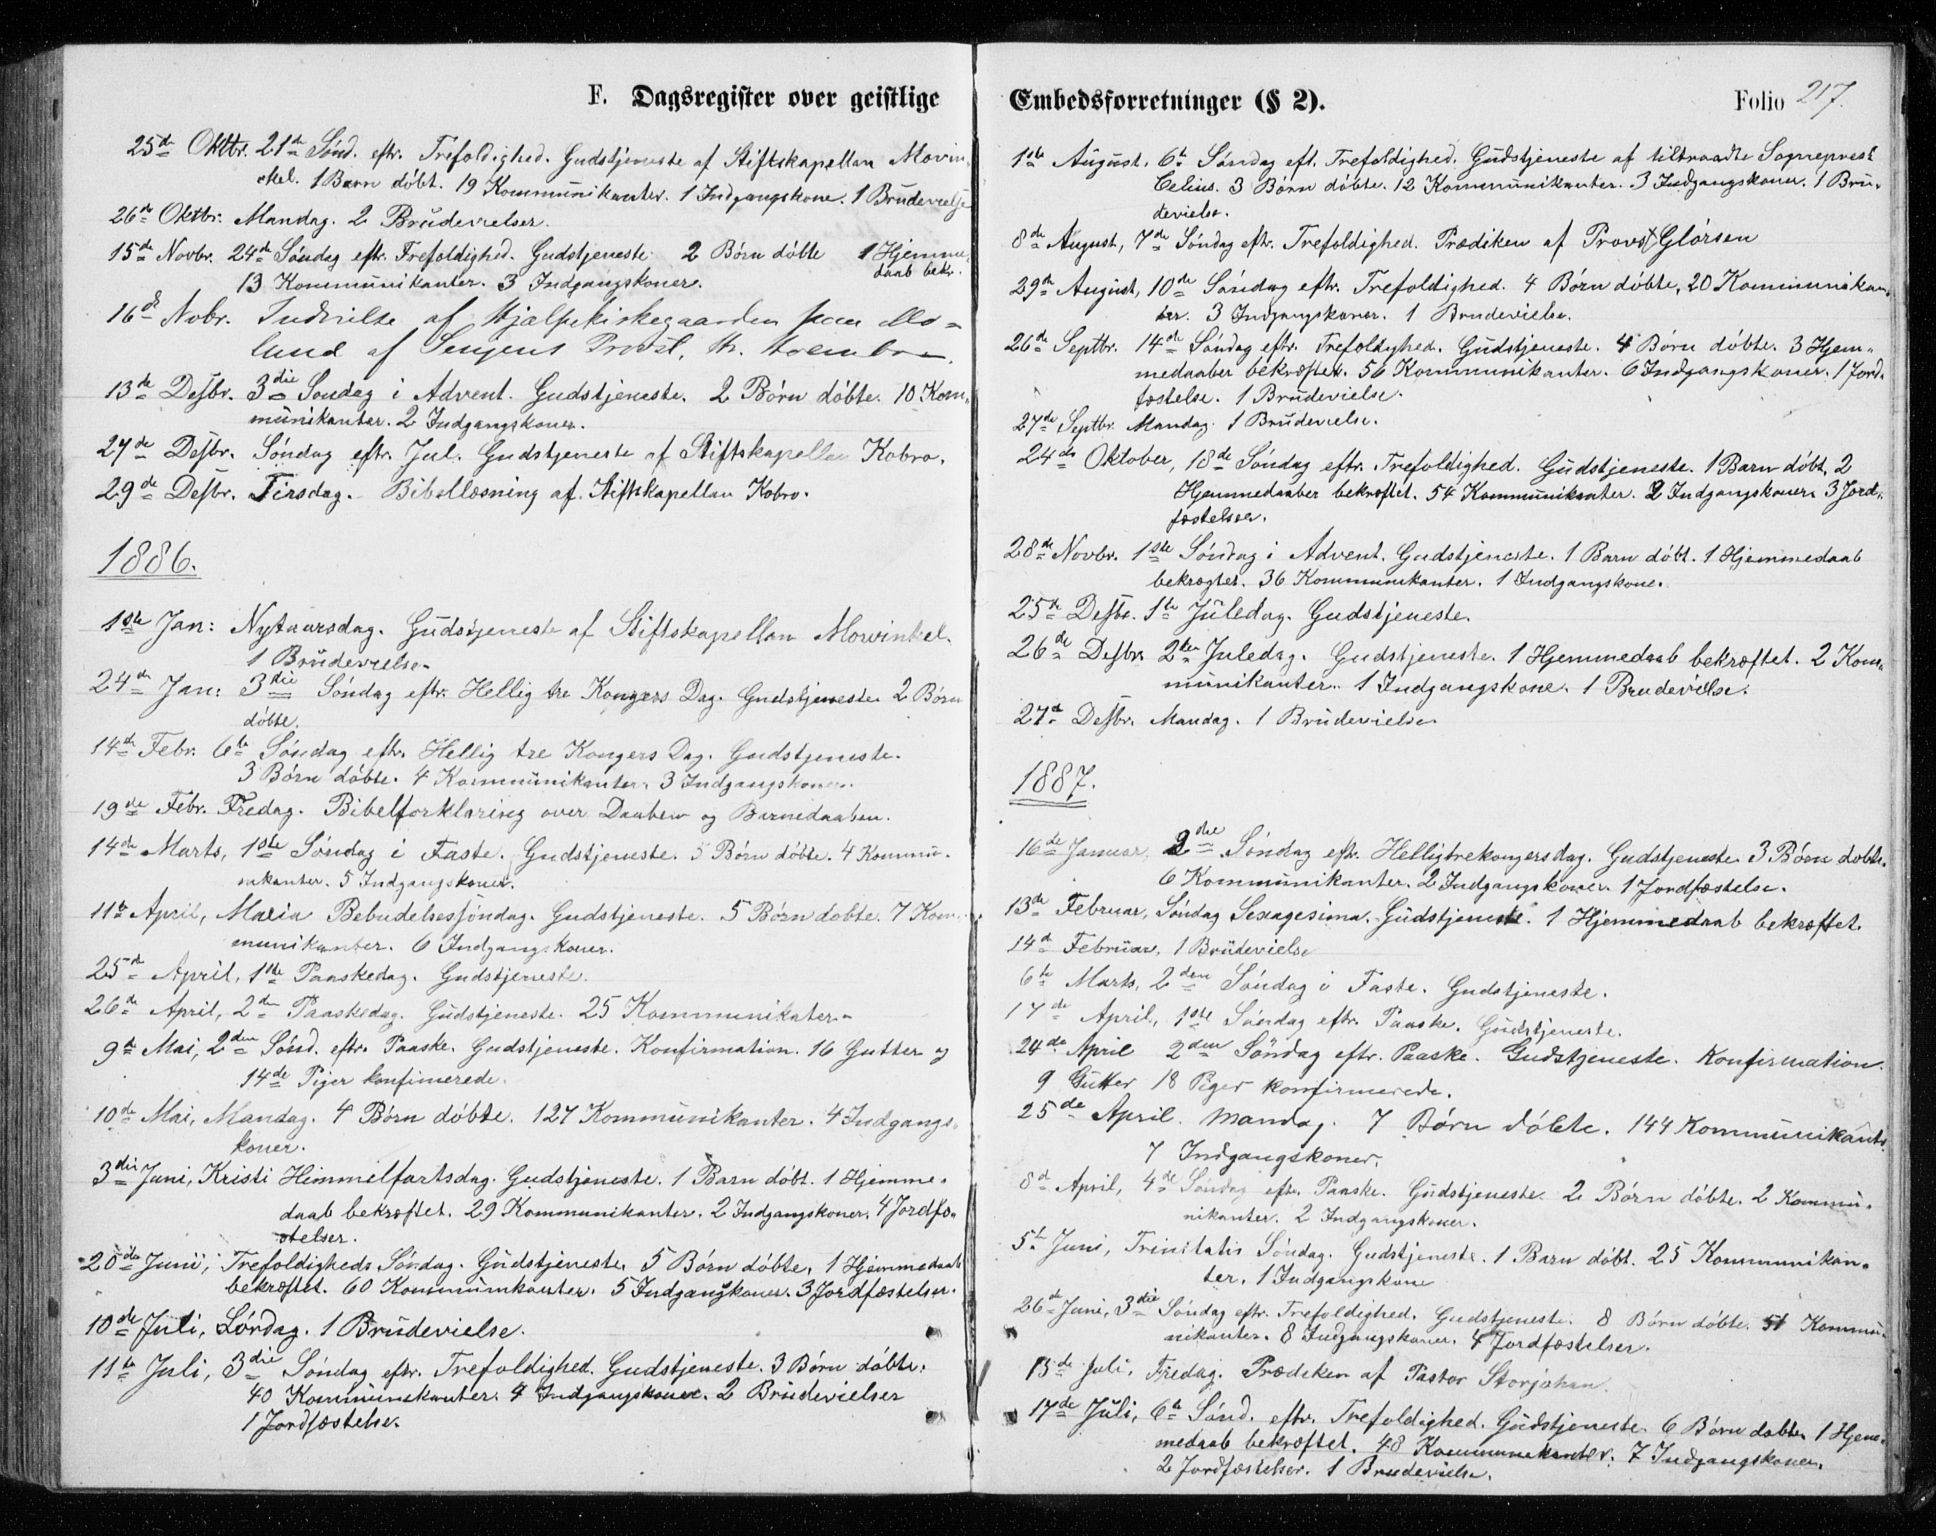 F. Dagsregister over geistlige
25de Oktbr. 21de Sønd. eftr. Trefoldighed. Gudstjeneste af Stiftskapellan Movin-
ckel. 1 Barn døbt. 19 Kommunikanter. 1 Indgangskone. 1 Brudevielse
26de Oktbr: Mandag. 2 Brudevielser.
15de Novbr. 24de Søndag eftr. Trefoldighed. Gudstjeneste 2 Børn døbte 1 Hjemme-
daab bekr.
13 Kommunikanter. 3 Indgangskoner.
16de Nobr. Indvielse af Hjælpekirkegaarden paa Mo-
lund af Senjens Provst, Hr.
13de Desbr. 3die Søndag i Advent. Gudstjeneste. 2 Børn døbte. 10 Kom-
munikanter. 2 Indgangskoner.
27de Desbr. Søndag eftr. Jul. Gudstjeneste af Stiftskapellan Kobro.
29de Desbr. Tirsdag. Bibellæsning af Stiftskapellan Kobro.
1886.
1ste Jan: Nytaarsdag. Gudstjeneste af Stiftskapellan Mowinkel.
1 Brudevielse.
24de Jan: 3die Søndag eftr. Hellig tre Kongers Dag. Gudstjeneste 2 Børn
døbte.
14de Febr. 6te Søndag eftr. Hellig tre Kongers Dag. Gudstjeneste.
3 Børn døbte. 4 Kommunikanter. 3 Indgangskoner.
19de Febr. Fredag. Bibelforklaring over Daaben og Barnedaaben.
14de Marts, 1ste Søndag i Faste. Gudstjeneste. 5 Børn døbte. 4 Kommu-
nikanter. 5 Indgangskoner.
11te April, Maria Bebudelsessøndag. Gudstjeneste. 5 Børn døbte. 7 Kom-
munikanter. 6 Indgangskoner.
25de April, 1ste Paaskedag. Gudstjeneste.
26de April, 2den Paaskedag. Gudstjeneste. 25 Kommunikater.
9de Mai, 2den Sønd. eftr. Paaske. Gudstjeneste. Konfirmation. 16 Gutter og
14de Piger konfimerede.
10de Mai, Mandag. 4 Børn døbte. 127 Kommunikanter. 4 Indgangs-
koner.
3die Juni, Kristi Himmelfartsdag. Gudstjeneste. 1 Barn døbt. 1 Hjemme-
daab bekræftet. 29 Kommunikanter. 2 Indgangskoner. 4 Jordfæ-
stelser.
20de Juni, Trefoldigheds Søndag. Gudstjeneste. 5 Børn døbte. 1 Hjemmedaab
bekræftet. 60 Kommunikanter. 5 Indgangskoner. 3 Jordfæstelser.
10de Juli, Lørdag. 1 Brudevielse.
11te Juli, 3die Søndag eftr. Trefoldighed. Gudstjeneste. 3 Børn døbte.
40 Kommunikanter. 4 Indgangskoner. 2 Brudevielser
1 Jordfæstelse.
Embedsforretninger (§ 2).
Folio 217.
1ste August. 6te Søndag eft. Trefoldighed. Gudstjeneste af tiltraadte Sogneprest
Celius. 3 Børn døbte. 12 Kommunikanter. 3 Indgangskoner. 1 Bru-
devielse.
8de August, 7de Søndag eftr. Trefoldighed. Prædiken af Provst Glørsen
29de August, 10de Søndag eftr. Trefoldighed. 4 Børn døbte, 20 Kommunikan-
ter. 3 Indgangskoner. 1 Brudevielse.
26de Septbr. 14de Søndag eftr. Trefoldighed. Gudstjeneste. 4 Børn døbte. 3 Hjem-
medaaber bekræftet. 56 Kommunikanter. 6 Indgangskoner. 1 Jord-
fæstelse. 1 Brudevielse.
27de Septbr. Mandag. 1 Brudevielse.
24de Oktober, 18de Søndag eftr. Trefoldighed. Gudstjeneste. 1 Barn døbt, 2
Hjemmedaaber bekræftet. 54 Kommunikanter. 2 Indgangskoner. 3 Jord-
fæstelser.
28de Novbr. 1ste Søndag i Advent. Gudstjeneste. 1 Barn døbt. 1 Hjemmedaab
bekræftet. 36 Kommunikanter. 1 Indgangskone.
25de Desbr. 1te Juledag. Gudstjeneste.
26de Desbr. 2den Juledag. Gudstjeneste. 1 Hjemmedaab bekræftet. 2 Kom-
munikanter. 1 Indgangskone. 1 Brudevielse.
27de Desbr. Mandag. 1 Brudevielse
1887.
16de Januar, 2den Søndag eftr. Helligtrekongersdag. Gudstjeneste 3 Børn døbte.
6 Kommunikanter. 2 Indgangskoner. 1 Jordfæstelse.
13de Februar, Søndag Sexagesima. Gudstjeneste. 1 Hjemmedaab bekræftet.
14de Februar, 1 Brudevielse
6te Marts, 2den Søndag i Faste. Gudstjeneste.
17de April, 1ste Søndag eftr. Paaske. Gudstjeneste.
24de April 2den Søndag eftr. Paaske. Gudstjeneste. Konfirmation
9 Gutter 18 Piger konfirmerede.
25de April. Mandag. 7 Børn døbte. 144 Kommunikant.
7 Indgangskoner.
8de April, 4de Søndag eftr. Paaske. Gudstjeneste. 2 Børn døbte. 2 Kommu-
nikanter. 2 Indgangskoner.
5te Juni, Trinitatis Søndag. Gudstjeneste. 1 Barn døbt. 25 Kommunikan-
ter. 1 Indgangskone
26de Juni, 3die Søndag eftr. Trefoldighed. Gudstjeneste. 8 Børn døbte. 51 Kommu-
nikanter. 8 Indgangskoner. 4 Jordfæstelser.
15de Juli, Fredag. Prædeken af Pastor Storjohan.
17de Juli, 6te Sønd. eftr. Trefoldighed. Gudstjeneste. 6 Børn døbte. 1 Hjem-
medaab bekræftet. 48 Kommunikanter. 7 Indgangskoner.
2 Jordfæstelser. 1 Brudevielse.